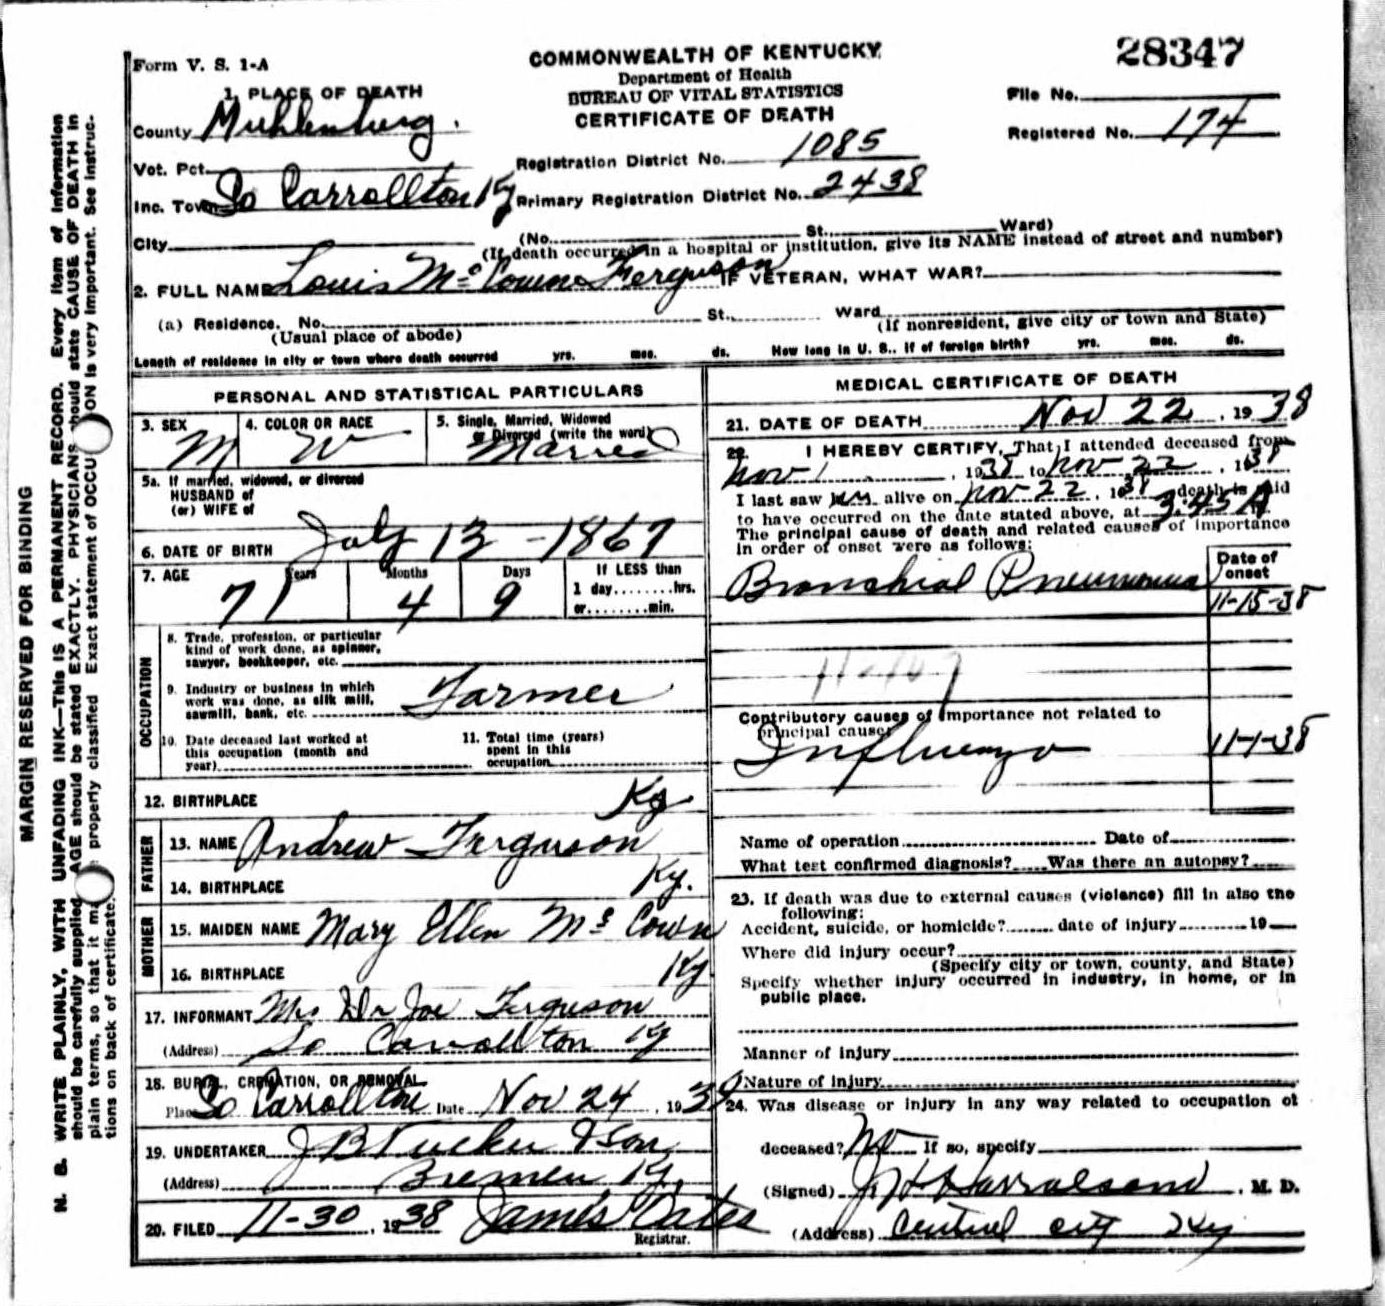 28347
Form V. S. 1-A
COMMONWEALTH OF KENTUCKY
Department of Health
BUREAU OF VITAL STATISTICS
CERTIFICATE OF DEATH
File No.
Registered No. 174
1. PLACE OF DEATH
County Muhlenburg.
Vot. Pct.
Inc. Town So Carrollton Ky
City
Registration District No. 1085
Primary Registration District No. 2438
(No. St. Ward)
(If death occurred in a hospital or institution, give its NAME instead of street and number)
2. FULL NAME Louis Mc Cown Ferguson IF VETERAN, WHAT WAR?
(a) Residence. No. St. Ward
(Usual place of abode) (If nonresident, give city or town and State)
Length of residence in city or town where death occurred yrs. mos. ds. How long in U. S., if of foreign birth? yrs. mos. ds.
PERSONAL AND STATISTICAL PARTICULARS
3. SEX M
4. COLOR OR RACE W
5. Single, Married, Widowed
or Divorced (write the word)
Married
5a. If married, widowed, or divorced
HUSBAND of
(or) WIFE of
6. DATE OF BIRTH July 13 - 1867
7. AGE Years Months Days If LESS than
71 4 9 1 day........hrs.
or........min.
OCCUPATION
8. Trade, profession, or particular
kind of work done, as spinner,
sawyer, bookkeeper, etc.
9. Industry or business in which
work was done, as silk mill,
sawmill, bank, etc. Farmer
10. Date deceased last worked at
this occupation (month and
year)
11. Total time (years)
spent in this
occupation
12. BIRTHPLACE Ky
FATHER
13. NAME Andrew Ferguson
14. BIRTHPLACE Ky.
MOTHER
15. MAIDEN NAME Mary Ellen Mc Cown
16. BIRTHPLACE Ky
17. INFORMANT Mrs Dr Joe Ferguson
(Address) So Carrollton Ky
18. BURIAL, CREMATION, OR REMOVAL
Place So Carrollton Date Nov 24, 1938
19. UNDERTAKER J B Tucker & Son
(Address) Bremen Ky.
20. FILED 11-30, 1938 James Oates
Registrar.
MEDICAL CERTIFICATE OF DEATH
21. DATE OF DEATH Nov 22, 1938
22. I HEREBY CERTIFY, That I attended deceased from
Nov 1, 1938 to Nov 22, 1938
I last saw him alive on Nov 22, 1938 death is said
to have occurred on the date stated above, at 3:45 A
The principal cause of death and related causes of importance
in order of onset were as follows:
Date of
onset
Bronchial Pneumonia 11-15-38
Contributory causes of importance not related to
principal cause:
Influenza 11-1-38
Name of operation Date of
What test confirmed diagnosis? Was there an autopsy?
23. If death was due to external causes (violence) fill in also the
following:
Accident, suicide, or homicide? date of injury 19
Where did injury occur?
(Specify city or town, county, and State)
Specify whether injury occurred in industry, in home, or in
public place.
Manner of injury
Nature of injury
24. Was disease or injury in any way related to occupation of
deceased? No If so, specify
(Signed) J H Harralson, M. D.
(Address) Central City Ky
MARGIN RESERVED FOR BINDING
N. B. WRITE PLAINLY, WITH UNFADING INK—THIS IS A PERMANENT RECORD. Every item of information
should be carefully supplied. AGE should be stated EXACTLY. PHYSICIANS should state CAUSE OF DEATH in
plain terms, so that it properly classified Exact statement of is very important. See instruc-
tions on back of certificate.